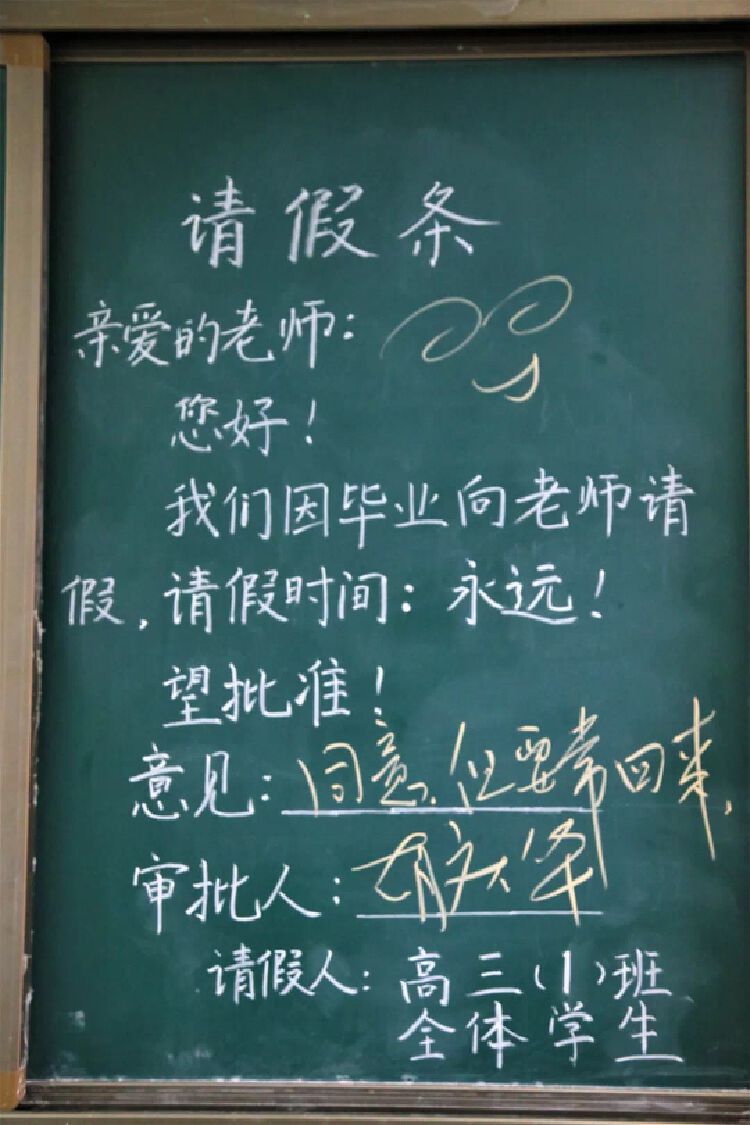 请假条
亲爱的老师:
您好!
我们因毕业向老师请
假,请假时间:永远!
望批准!
意见:同意,但要常回来,
审批人:
请假人:高三(1)班
全体学生